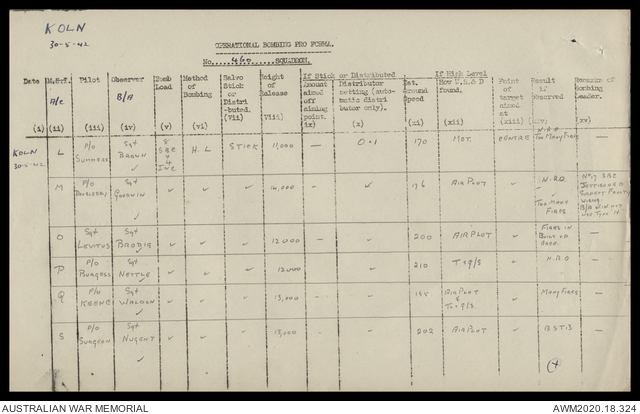 KOLN
30-5-42
OPERATIONAL BOMBING PRO FORMA.
No. 460 SQUADRON.
Date M.& F. A/c Pilot Observer B/A Bomb Load Method of Bombing Salvo Stick or Distri-buted. Height of Release If Stick or Distributed Amount aimed off aiming point. Distributor setting (auto-matic distri-butor only). Est. Ground Speed If High Level How U.S & D found. Point of target aimed at Result if Observed Remarks of Bombing Leader.
(i) (ii) (iii) (iv) (v) (vi) (vii) (viii) ix) (x) (xi) (xii) (xiii) (xiv) (xv)
KOLN 30-5-42 L P/O SUMMERS Sgt BROWN 8 SBC 4 INC H.L STICK 11,000 — 0.1 170 MET. CENTRE N.R.O Too Many Fires —
M P/O Sgt GOODWIN ✓ ✓ ✓ 14,000 — ✓ 176 AIR PLOT ✓ N.R.O Too Many FIRES No 17 SBC
O Sgt LEVITUS Sgt BRODIE ✓ ✓ ✓ 12,000 — ✓ 200 AIRPLOT ✓ FIRES IN BUILT UP AREA. —
P P/O BURGESS Sgt NETTLE ✓ ✓ ✓ 12,000 — ✓ 210 T & G/S ✓ N.R.O —
Q P/O KEENE Sgt WALDEN ✓ ✓ ✓ 15,000 — ✓ AIRPLOT & T & G/S. ✓ Many Fires —
S P/O SURGEON Sgt NUGENT ✓ ✓ ✓ 15,000 — ✓ 202 AIRPLOT ✓ —
AUSTRALIAN WAR MEMORIAL
AWM2020.18.324